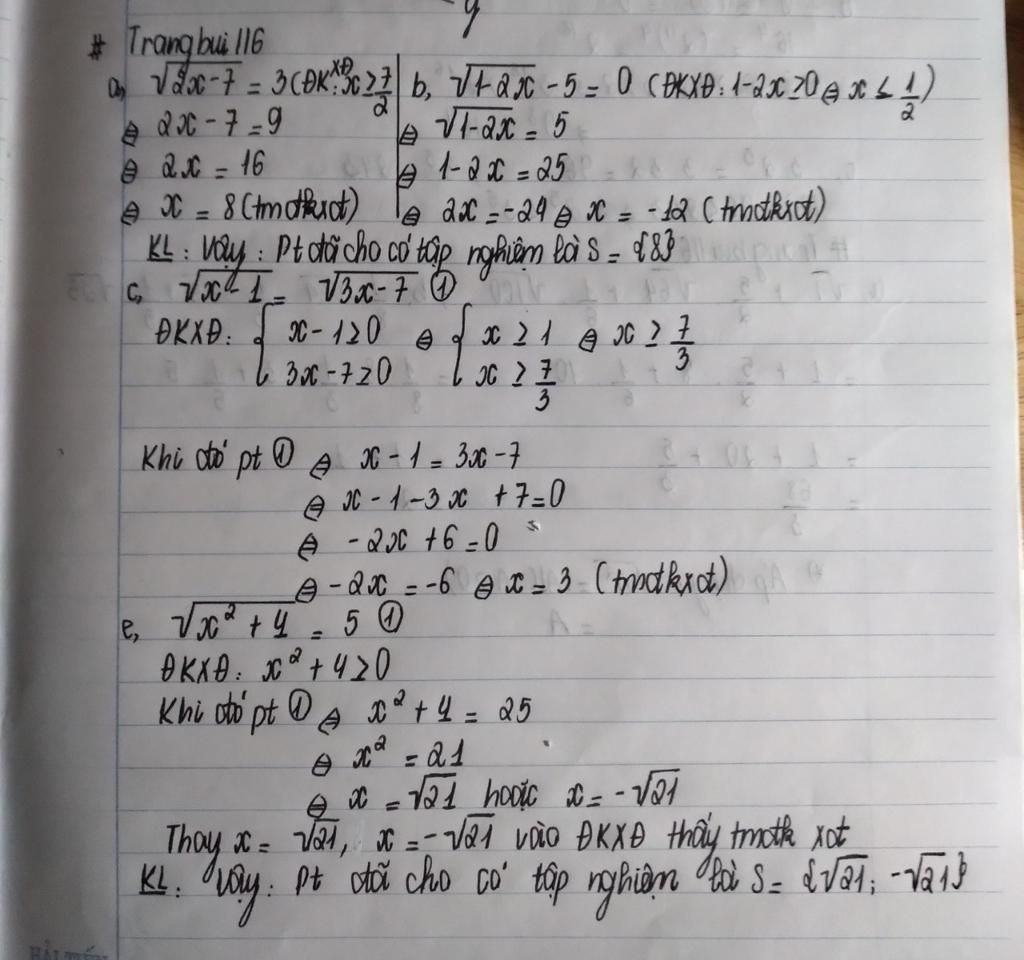 # Trang bui 116
a, √2x-7 = 3 (ĐKXĐ: x ≥ 7/2)
⇔ 2x - 7 = 9
⇔ 2x = 16
⇔ x = 8 (tmđkxđ)
b, √1-2x - 5 = 0 (ĐKXĐ: 1-2x ≥ 0 ⇔ x ≤ 1/2)
⇔ √1-2x = 5
⇔ 1-2x = 25
⇔ 2x = -24 ⇔ x = -12 (tmđkxđ)
KL: Vậy: Pt đã cho có tập nghiệm là S = {8}
c, √x-1 = √3x-7 ①
ĐKXĐ: { x-1 ≥ 0 ⇔ { x ≥ 1 ⇔ x ≥ 7/3
3x-7 ≥ 0 x ≥ 7/3
Khi đó pt ① ⇔ x-1 = 3x-7
⇔ x-1-3x+7=0
⇔ -2x+6=0
⇔ -2x = -6 ⇔ x = 3 (tmđkxđ)
e, √x²+4 = 5 ①
ĐKXĐ: x²+4 ≥ 0
Khi đó pt ① ⇔ x²+4 = 25
⇔ x² = 21
⇔ x = √21 hoặc x = -√21
Thay x = √21, x = -√21 vào ĐKXĐ thấy tmđk xđ
KL: Vậy: Pt đã cho có tập nghiệm là S = {√21; -√21}
HẢI TIẾN